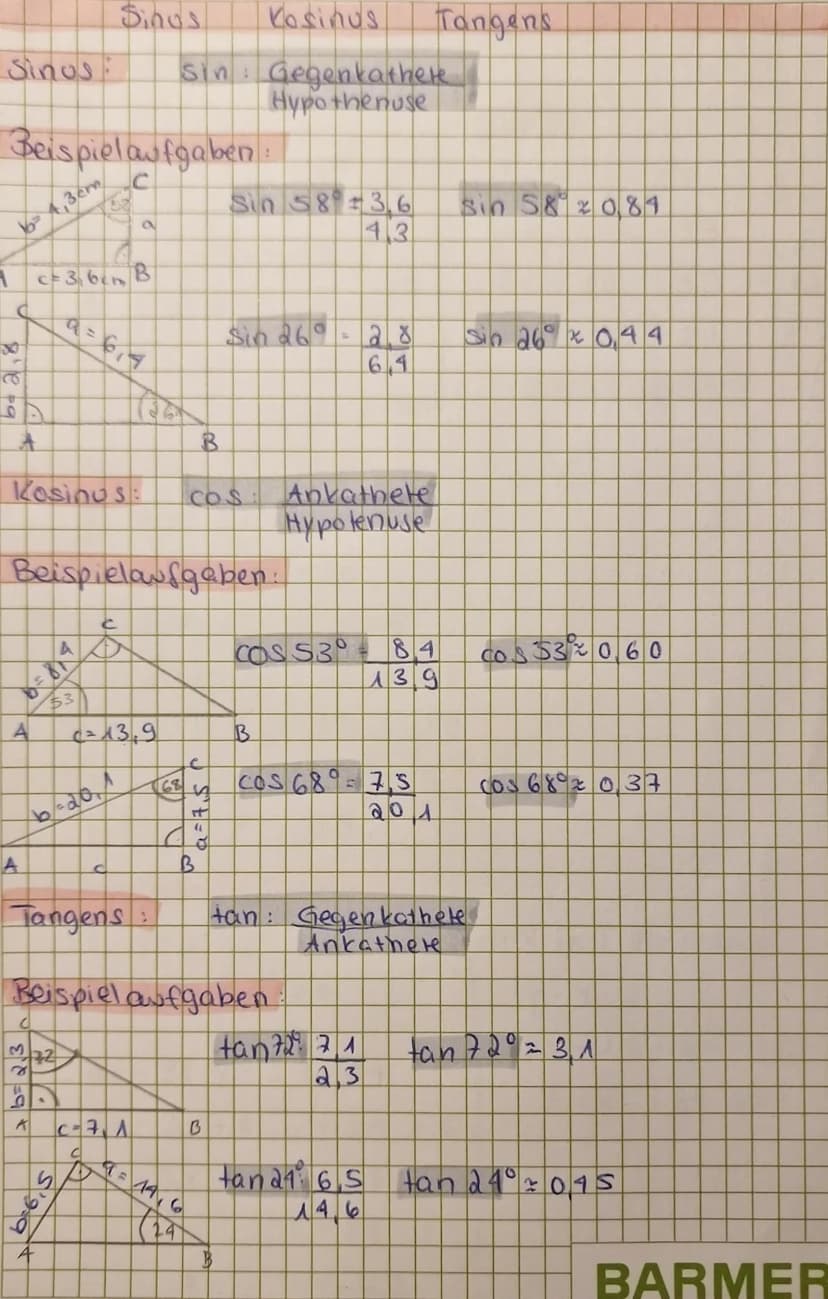 Sinus Kosinus Tangens
Sinus: sin: Gegenkathete
Hypothenuse
Beispielaufgaben:
b=4,3cm C
58
a
c=3,6cm B
sin 58° = 3,6 sin 58° ≈ 0,84
4,3
C a=6,4
b=2,8
26
A B
sin 26° = 2,8 sin 26° ≈ 0,44
6,4
Kosinus: cos: Ankathete
Hypotenuse
Beispielaufgaben:
C
b=8,4
53
A c=13,9 B
cos 53° = 8,4 cos 53° ≈ 0,60
13,9
C
b=20,1 68
a=7,5
A c B
cos 68° = 7,5 cos 68° ≈ 0,37
20,1
Tangens: tan: Gegenkathete
Ankathete
Beispielaufgaben:
C
b=2,3 72
A c=7,1 B
tan 72°: 7,1 tan 72° ≈ 3,1
2,3
C a=14,6
b=6,5
24
A B
tan 24°: 6,5 tan 24° ≈ 0,45
14,6
BARMER